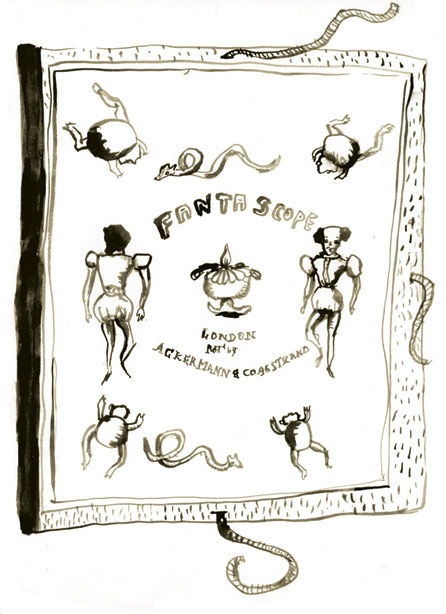 FANTASCOPE
LONDON
ACKERMANN & CO 96 STRAND